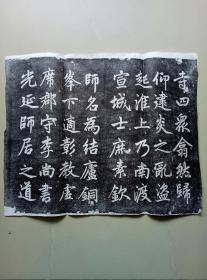 寺四眾翕然歸
仰建炎之亂盜
起淮上乃南渡
宣城士庶素欽
師名為結廬銅
峯下適彰教虛
席郡守李尚書
光延師居之道